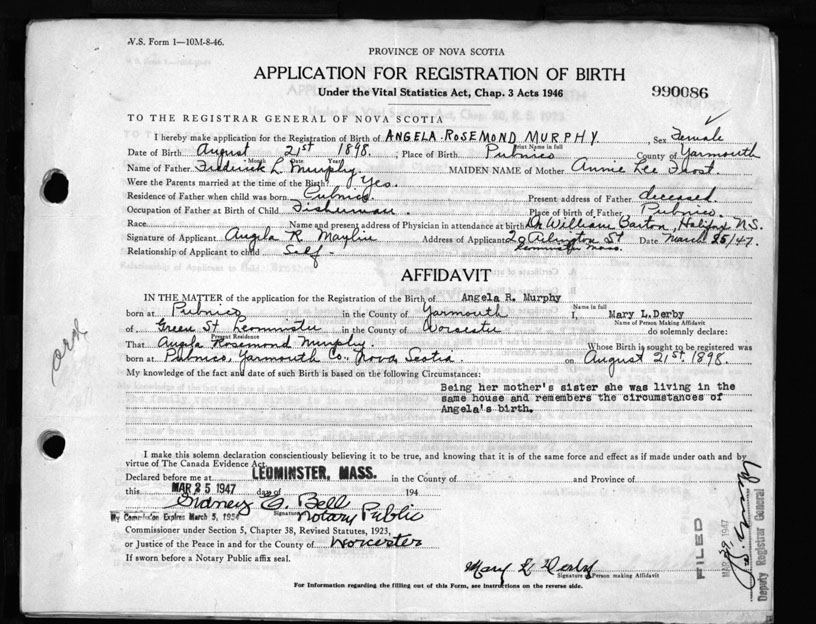 V.S. Form 1—10M-8-46.
PROVINCE OF NOVA SCOTIA
APPLICATION FOR REGISTRATION OF BIRTH
Under the Vital Statistics Act, Chap. 3 Acts 1946
990086
TO THE REGISTRAR GENERAL OF NOVA SCOTIA
I hereby make application for the Registration of Birth of ANGELA ROSEMOND MURPHY. Sex Female
Print Name in full
Date of Birth August 21st 1898. Place of Birth Pubnico County of Yarmouth
Month Date Year
Name of Father Frederick L. Murphy MAIDEN NAME of Mother Annie Lee Frost.
Were the Parents married at time of the Birth? Yes.
Residence of Father when child was born Pubnico Present address of Father deceased
Occupation of Father at Birth of Child Fisherman. Place of birth of Father Pubnico.
Race Name and present address of Physician in attendance at birth Dr. William Barton, Halifax N.S.
Signature of Applicant Angela R. Address of Applicant Arlington St Date March 25/47.
Leominster Mass.
Relationship of Applicant to child Self.
AFFIDAVIT
IN THE MATTER of the application for the Registration of the Birth of Angela R. Murphy
Name in full
born at Pubnico in the County of Yarmouth I, Mary L. Derby
Name of Person Making Affidavit
of Green St Leominster in the County of Worcester do solemnly declare:
Present Residence
That Angela Rosemond Murphy. Whose Birth is sought to be registered was
born at Pubnico, Yarmouth Co., Nova Scotia. on August 21st. 1898.
My knowledge of the fact and date of such Birth is Based on the following Circumstances:
Being her mother's sister she was living in the
same house and remembers the circumstances of
Angela's birth.
I make this solemn declaration conscientiously believing it to be true, and knowing that it is of the same force and effect as if made under oath and by
virtue of The Canada Evidence Act.
Declared before me at LEOMINSTER, MASS. in the County of and Province of
this MAR 25 1947 date of 194
Sidney Bell
Signature
My Commission Expires March 5, Notary Public
Commissioner under Section 5, Chapter 38, Revised Statutes, 1923,
or Justice of the Peace in and for the County of Worcester
If sworn before a Notary Public affix seal.
Mary L. Derby
Signature of Person making Affidavit
For Information regarding the filling out of this Form, see Instructions on the reverse side.
FILED
MAR 1947
Deputy Registrar General